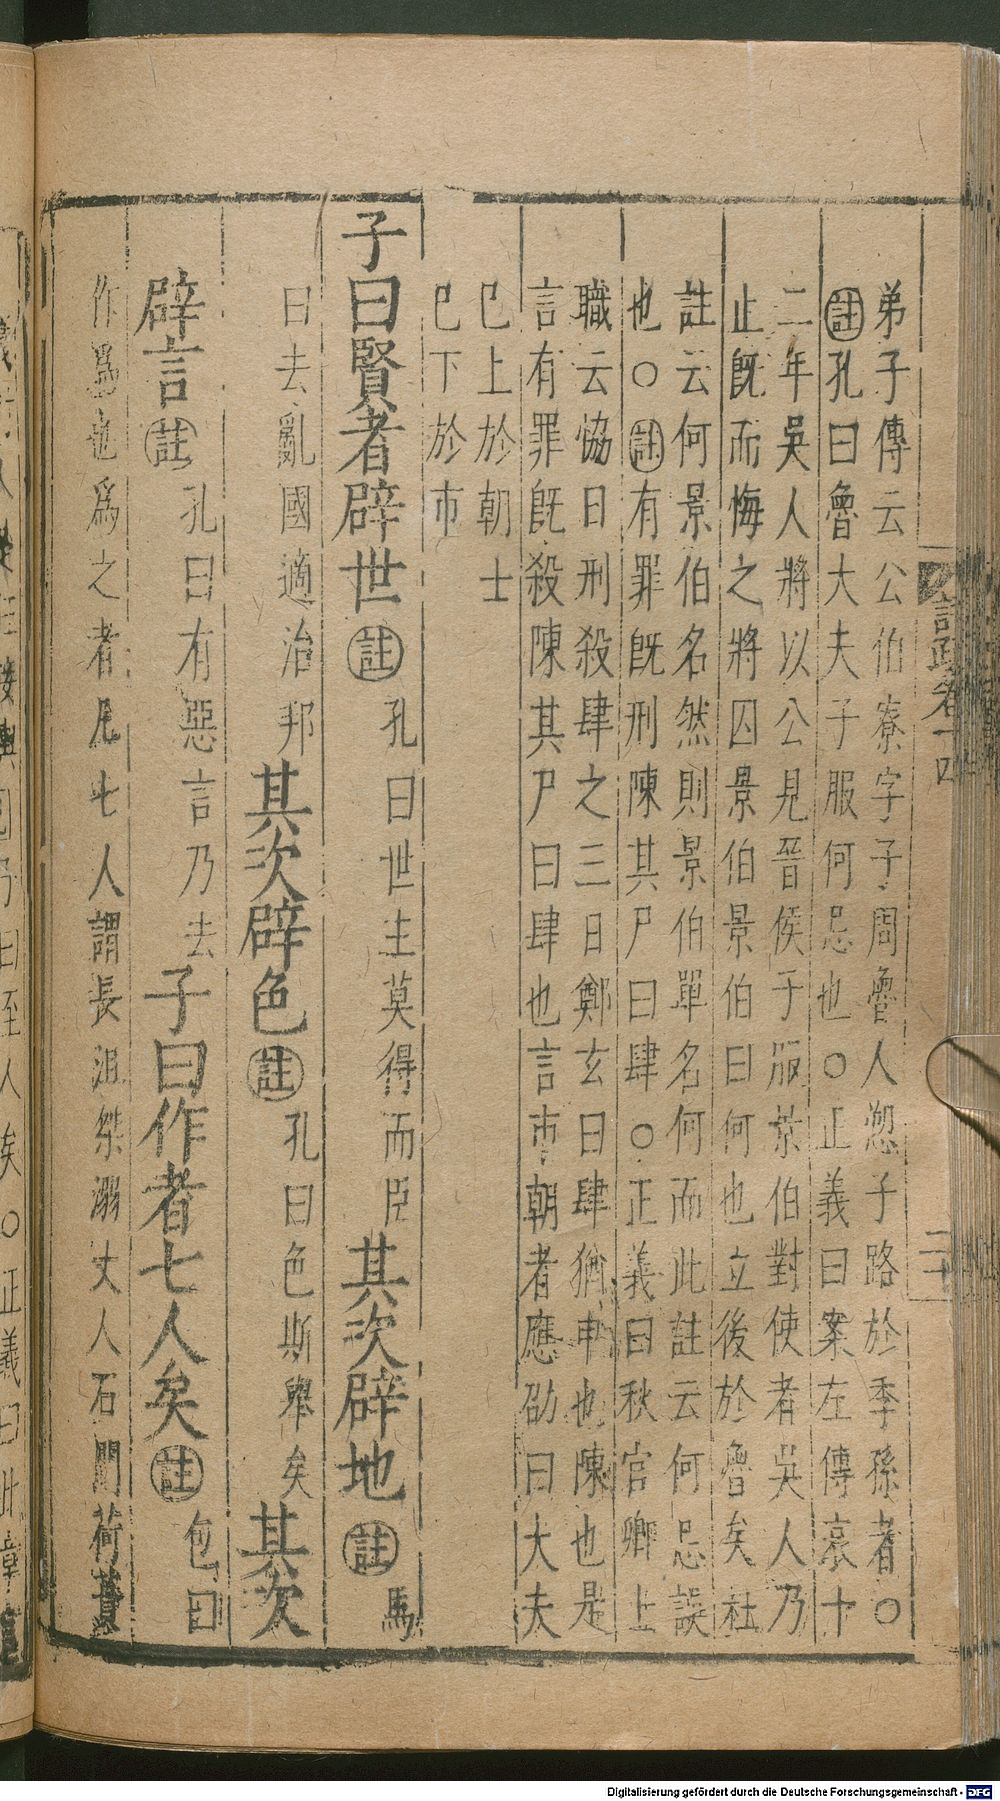 弟子傳云公伯寮字子周魯人愬子路於季孫者○
註孔曰魯大夫子服何忌也○正義曰案左傳哀十
二年吳人將以公見晉侯子服景伯對使者吳人乃
止旣而悔之將囚景伯景伯曰何也立後於魯矣杜
註云何景伯名然則景伯單名何而此註云何忌誤
也○註有罪旣刑陳其尸曰肆○正義曰秋官卿上
職云協日刑殺肆之三日鄭玄曰肆猶申也陳也是
言有罪旣殺陳其尸曰肆也言市朝者應劭曰大夫
已上於朝士
已下於市
子曰賢者辟世註孔曰世主莫得而臣其次辟地註馬
曰去亂國適治邦其次辟色註孔曰色斯舉矣其次
辟言註孔曰有惡言乃去子曰作者七人矣註包曰
作爲也爲之者凡七人謂長沮桀溺丈人石門荷蕢
卷十四
二十
Digitalisierung gefördert durch die Deutsche Forschungsgemeinschaft - DFG